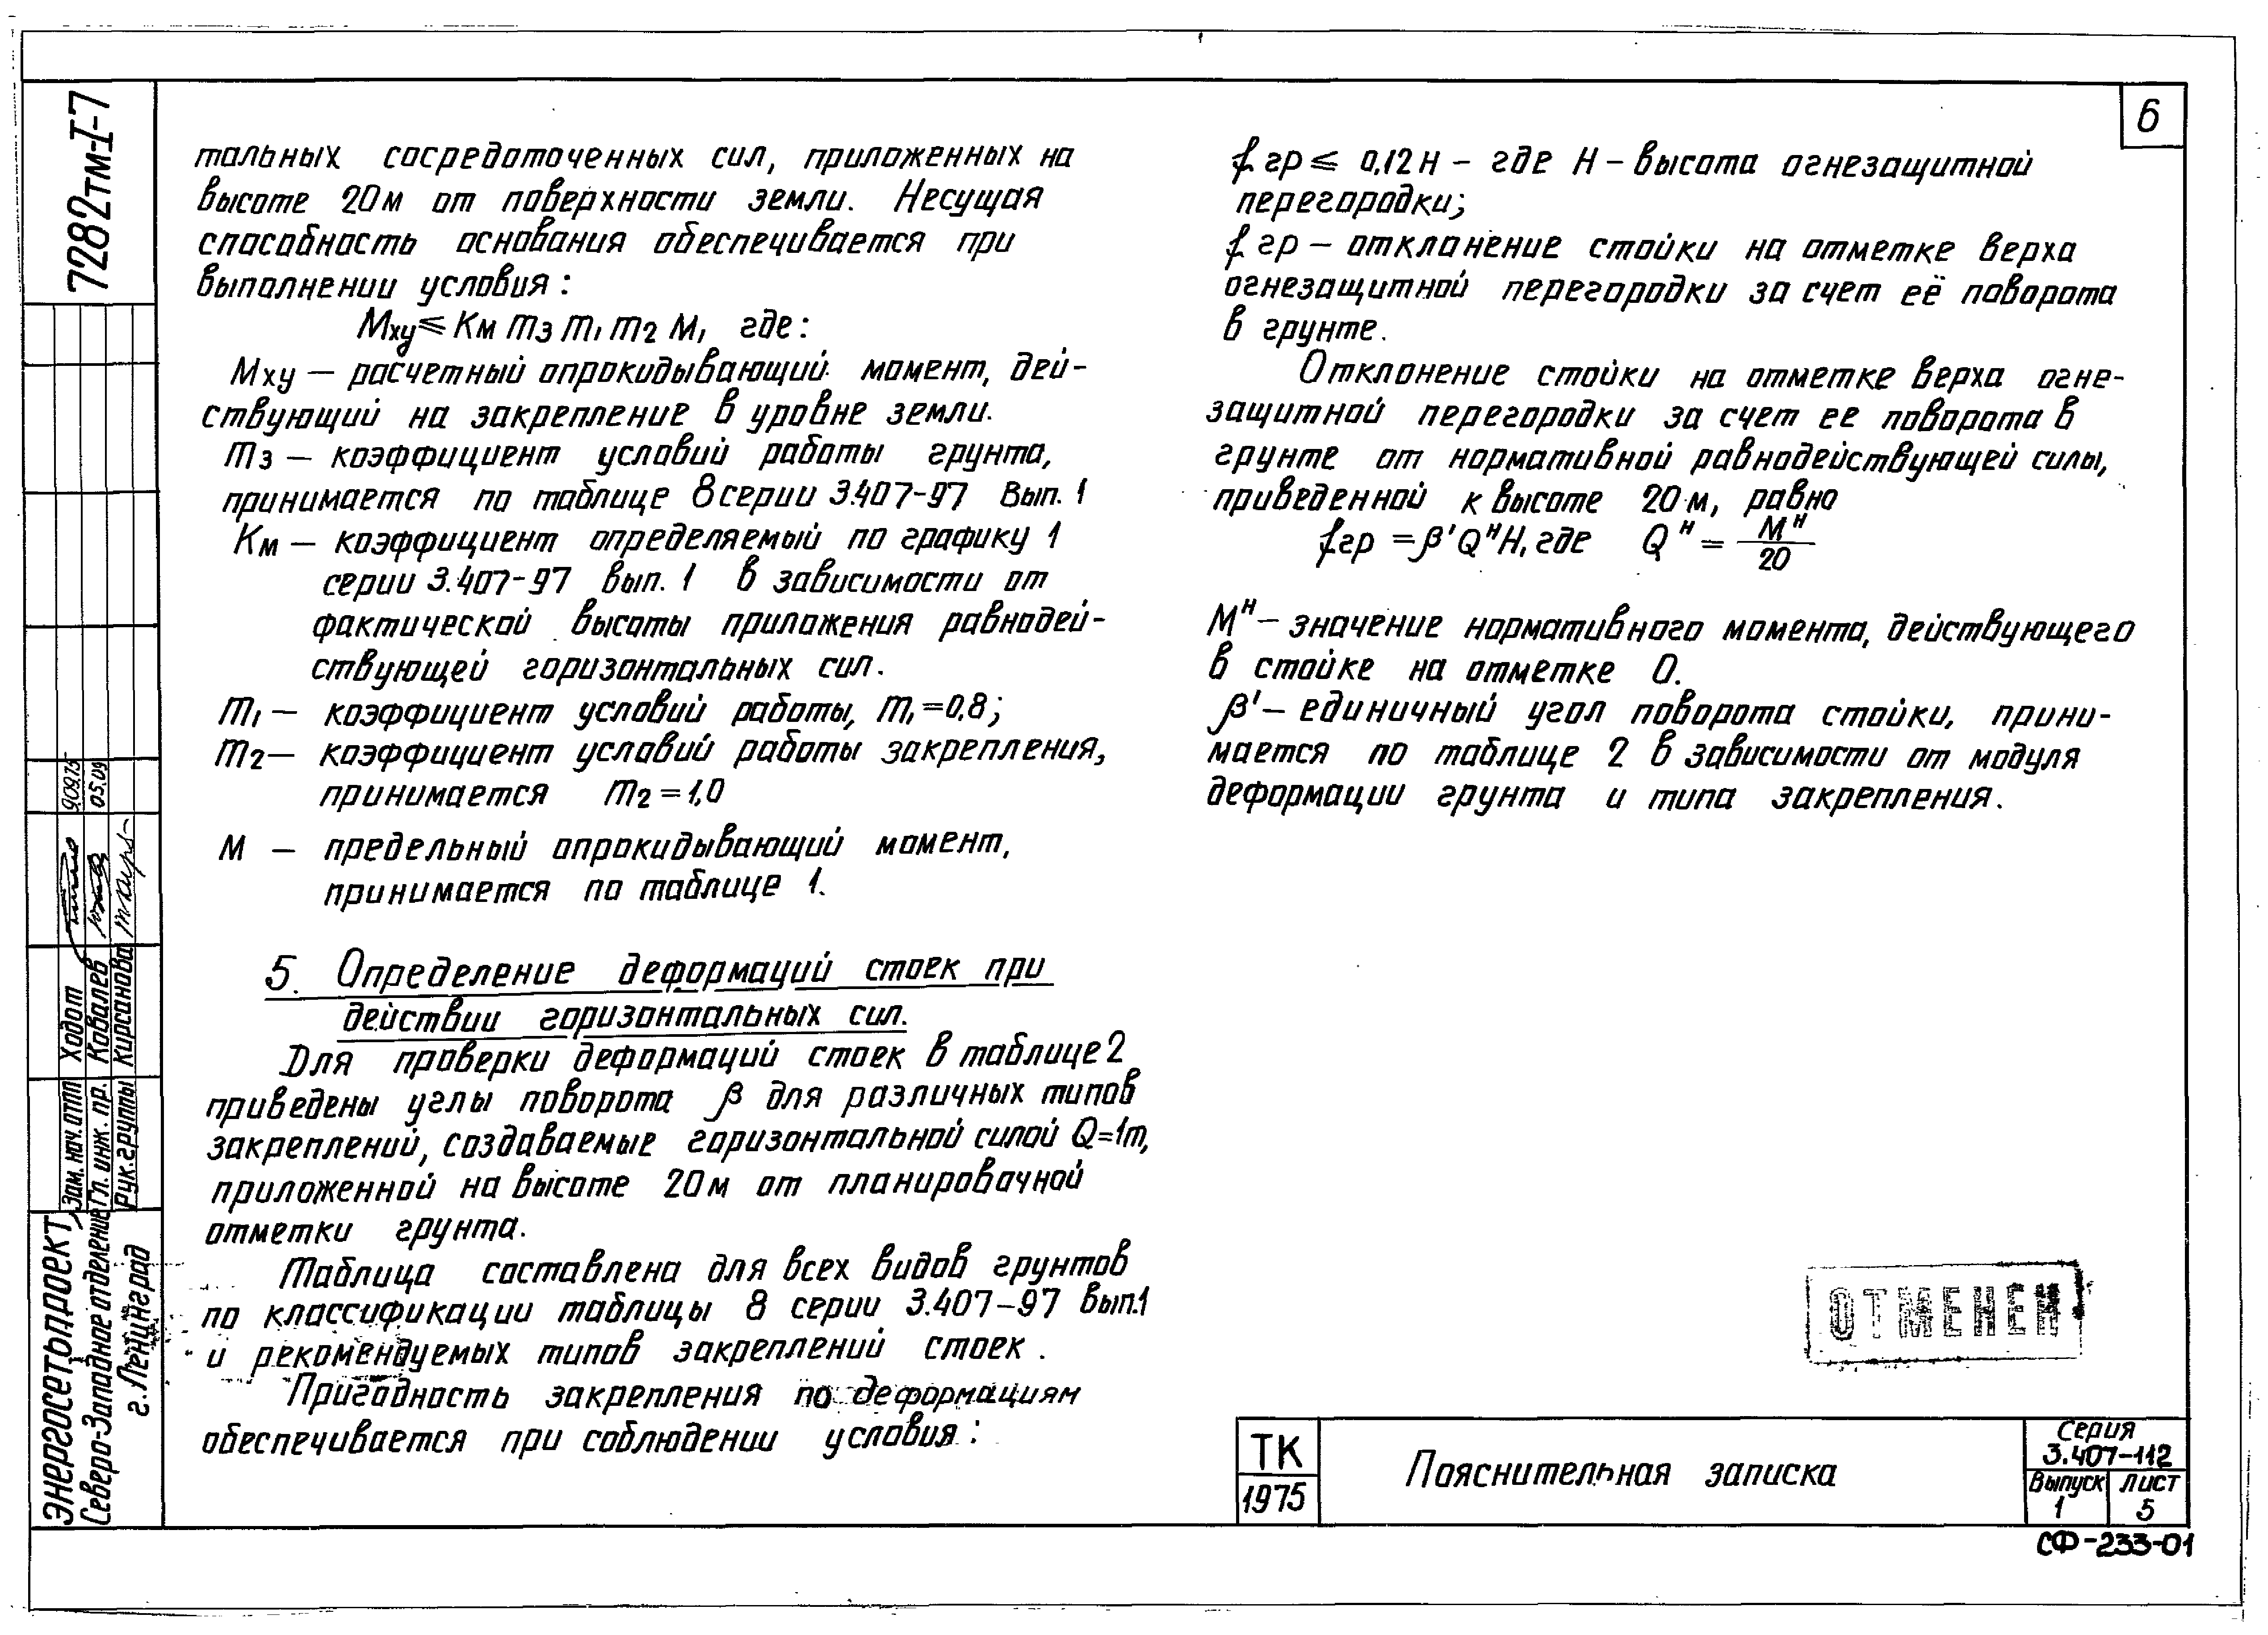 6
тальных сосредоточенных сил, приложенных на
высоте 20м от поверхности земли. Несущая
способность основания обеспечивается при
выполнении условия:
Mxy ≤ Kм m3 m1 m2 M, где:
Mxy — расчетный опрокидывающий момент, дей-
ствующий на закрепление в уровне земли.
m3 — коэффициент условий работы грунта,
принимается по таблице 8 серии 3.407-97 Вып. 1
Kм — коэффициент определяемый по графику 1
серии 3.407-97 вып. 1 в зависимости от
фактической высоты приложения равнодей-
ствующей горизонтальных сил.
m1 — коэффициент условий работы, m1=0,8;
m2 — коэффициент условий работы закрепления,
принимается m2=1,0
M — предельный опрокидывающий момент,
принимается по таблице 1.
5. Определение деформаций стоек при
действии горизонтальных сил.
Для проверки деформаций стоек в таблице 2
приведены углы поворота β для различных типов
закреплений, создаваемые горизонтальной силой Q=1т,
приложенной на высоте 20м от планировочной
отметки грунта.
Таблица составлена для всех видов грунтов
по классификации таблицы 8 серии 3.407-97 Вып.1
и рекомендуемых типов закреплений стоек.
Пригодность закрепления по деформациям
обеспечивается при соблюдении условия:
fгр ≤ 0,12H – где H – высота огнезащитной
перегородки;
fгр – отклонение стойки на отметке верха
огнезащитной перегородки за счет её поворота
в грунте.
Отклонение стойки на отметке верха огне-
защитной перегородки за счет ее поворота в
грунте от нормативной равнодействующей силы,
приведенной к высоте 20м, равно
fгр = β' Qᴴ H, где Qᴴ = Mᴴ/20
Mᴴ – значение нормативного момента, действующего
в стойке на отметке 0.
β' – единичный угол поворота стойки, прини-
мается по таблице 2 в зависимости от модуля
деформации грунта и типа закрепления.
ОТМЕНЕН
ТК
1975
Пояснительная записка
Серия
3.407-112
Выпуск
1
Лист
5
СФ-233-01
7282тм-I-7
9.09.75
05.09
Зам. нач. отпп Ходот
Гл. инж. пр. Ковалев
Рук. группы Кирсанова
ЭНЕРГОСЕТЬПРОЕКТ
Северо-Западное отделение
г. Ленинград